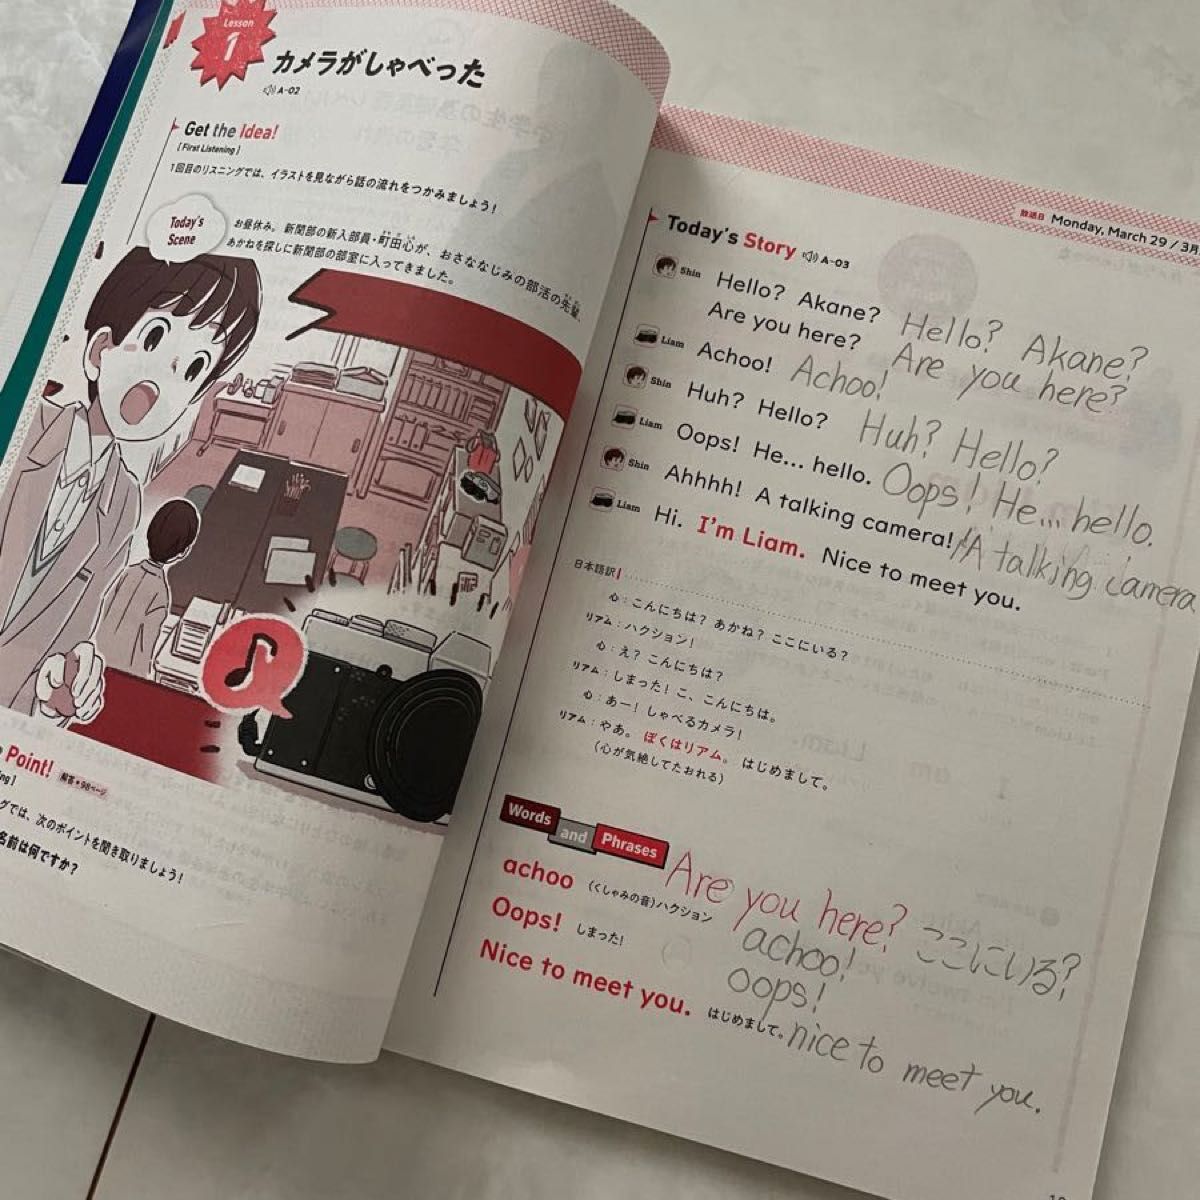 Lesson
1
カメラがしゃべった
A-02
Get the idea!
[First Listening]
1回目のリスニングでは、イラストを見ながら話の流れをつかみましょう!
Today's
Scene
お昼休み。新聞部の新入部員・町田心が、おさななじみの部活の先輩、
あかねを探しに新聞部の部室に入ってきました。
Point!
解答・98ページ
ng]
グでは、次のポイントを聞き取りましょう!
名前は何ですか?
放送日 Monday, March 29 / 3月
Today's Story A-03
Shin Hello? Akane? Hello? Akane?
Are you here? Are you here?
Liam Achoo! Achoo!
Shin Huh? Hello? Huh? Hello?
Liam Oops! He... hello. Oops! He... hello.
Shin Ahhhh! A talking camera! A talking camera
Liam Hi. I'm Liam. Nice to meet you.
日本語訳
心:こんにちは? あかね? ここにいる?
リアム:ハクション!
心:え? こんにちは?
リアム:しまった! こ、こんにちは。
心:あー! しゃべるカメラ!
リアム:やあ。ぼくはリアム。はじめまして。
(心が気絶してたおれる)
Words and Phrases
Are you here? ここにいる?
achoo (くしゃみの音)ハクション achoo!
Oops! しまった! oops!
Nice to meet you. はじめまして。 nice to meet you.